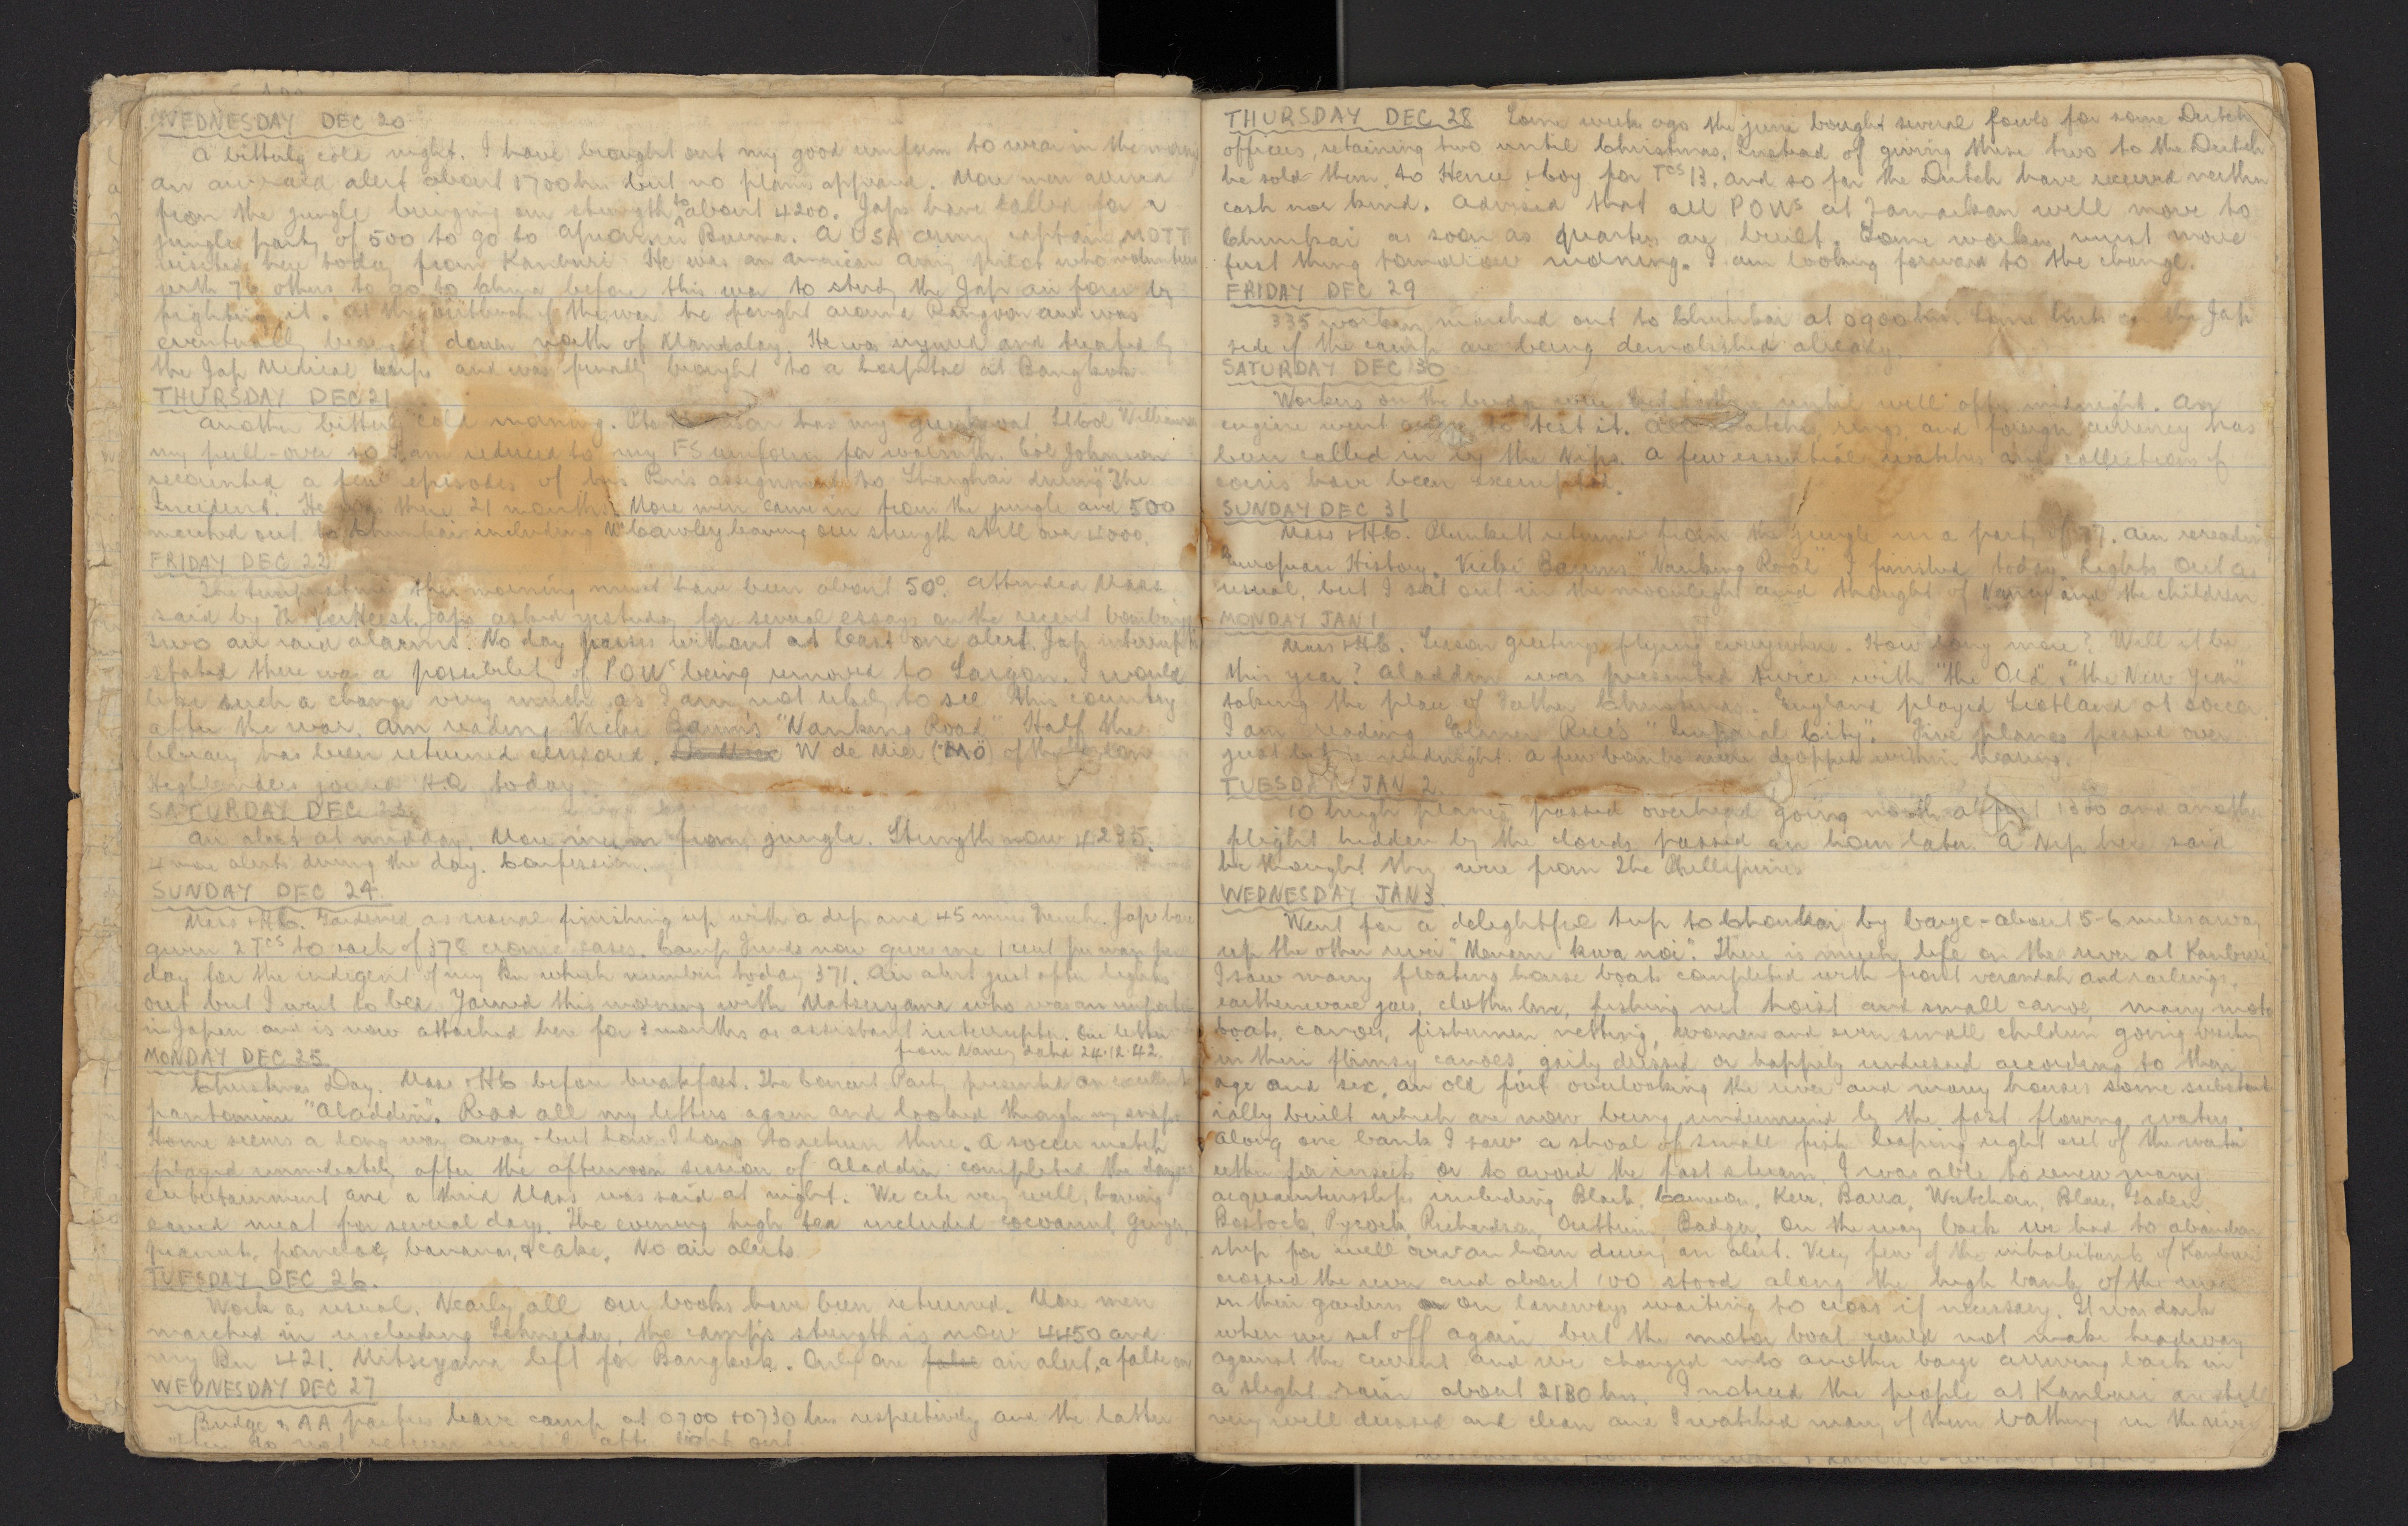 WEDNESDAY DEC 20
A bitterly cold night. I have brought out my good uniform to wear in the
An air raid alert about 1700 hrs but no planes appeared. More men arrived
from the jungle bringing our strength to about 4200. Japs have called for a
jungle party of 500 to go to Burma. A USA army captain MOTT
visited here today from Kanburi. He was an American Army pilot who volunteered
with 76 others to go to China before this war to study the Jap air force by
fighting it. At the outbreak of the war he fought around Rangoon and was
eventually down north of Mandalay. He was injured and treated by
the Jap Medical Corps and was finally brought to a hospital at Bangkok.
THURSDAY DEC 21
Another bitterly cold morning. has my greatcoat Lt Col Williams
my pull-over so I am reduced to my FS uniform for warmth. Col Johnson
recounted a few episodes of his Bn's assignment to Shanghai during "The
Incident". He was there 21 months. More men came in from the jungle and 500
marched out to Chumkai including Cawley leaving our strength still over 4000.
FRIDAY DEC 22
The temperature this morning must have been about 50°. Attended Mass
said by Fr Verheest. Japs asked yesterday for several essays on the recent bombing
two air raid alarms. No day passes without at least one alert. Jap
stated there was a possibility of POWs being removed to Saigon. I would
like such a change very much as I am not likely to see this country
after the war. Am reading Vicki Baum's "Nanking Road" Half the
library has been returned censored. W de Mier ("MO") of the
Highlanders joined H.Q. today.
SATURDAY DEC 23.
An alert at midday. More men in from jungle. Strength now 4235.
4 more alerts during the day. Confession.
SUNDAY DEC 24.
Mass & HC. Gardened as usual finishing up with a dip and 45 mins French. Japs have
given 2 Tcs to each of 378 cases. Camp Funds now give me 1 cent per man per
day for the indigent of my Bn which numbers today 371. Air alert just after lights
out but I went to bed. Yarned this morning with Matsuyama who was an
in Japan and is now attached here for 3 months as assistant interrupter. One letter
from Nancy dated 24.12.42.
MONDAY DEC 25.
Christmas Day. Mass & HC before breakfast. The Concert Party presented an excellent
pantomime "Aladdin". Read all my letters again and looked through my snaps.
Home seems a long way away - but how I long to return there. A soccer match
played immediately after the afternoon session of Aladdin completed the days
entertainment and a third Mass was said at night. We ate very well, having
saved meat for several days. The evening high tea included cocoanut, ginger,
peanuts, pomeloe, bananas, & cake. No air alerts.
TUESDAY DEC 26.
Work as usual. Nearly all our books have been returned. More men
marched in including Schneider, the camp's strength is now 4450 and
my Bn 421. Mitsuyama left for Bangkok. Only one false air alert, a false one
WEDNESDAY DEC 27
Bridge & AA parties leave camp at 0700 & 0730 hrs respectively and the latter
do not return until after light out
THURSDAY DEC 28 Some weeks ago the bought several fowls for some Dutch
officers, retaining two until Christmas. Instead of giving these two to the Dutch
he sold them to for Tcs 13, and so far the Dutch have received neither
cash nor kind. Advised that all POWs at Tamarkan will move to
Chumkai as soon as quarters are built. Some workers must move
first thing tomorrow morning. I am looking forward to the change.
FRIDAY DEC 29
335 workers marched out to Chumkai at 0900 hrs. Some huts on the Jap
side of the camp are being demolished already.
SATURDAY DEC 30
Workers on the bridge were until well after midnight. An
engine went over to test it. All watches, rings, and foreign currency has
been called in by the Nips. A few essential watches and collections of
coins have been exempted.
SUNDAY DEC 31
Mass & HC. Plunkett returned from the jungle in a party of 77. Am rereading
European History. Vicki Baum's "Nanking Road" I finished today. Lights out as
usual, but I sat out in the moonlight and thought of Nancy and the children.
MONDAY JAN 1
Mass & HC. Season greetings flying everywhere. How long more? Will it be
this year? Aladdin was presented twice with "the Old" & "the New Year"
taking the place of Father Christmas. England played Scotland at soccer.
I am reading Elmer Rice's "Imperial City". Five planes passed over
just before midnight. A few bombs were dropped within hearing.
TUESDAY JAN 2.
10 high planes passed overhead going north about 1300 and another
flight hidden by the clouds passed an hour later. A Nip here said
he thought they were from The Phillipines
WEDNESDAY JAN 3.
Went for a delightful trip to Choukai, by barge - about 5-6 miles away
up the other river "Menam kwa noi". There is much life on the river at Kanburi
I saw many floating house boats completed with front verandah and railings,
earthenware jars, clothes line, fishing net hoist and small canoe, many motor
boats, canoes, fishermen netting, women and even small children going visiting
in their flimsy canoes, gaily dressed or happily undressed according to their
age and sex, an old fort overlooking the river and many houses some substant-
ially built which are now being undermined by the fast flowing water.
Along one bank I saw a shoal of small fish leaping right out of the water
either for insects or to avoid the fast stream. I was able to renew many
acquaintanceships including Black, Cameron, Kerr, Barra, Blau,
Bostock, Pycock, Richardson, Outtrim Badger, On the way back we had to abandon
ship for well over an hour during an alert. Very few of the inhabitants of Kanburi
crossed the river and about 100 stood along the high bank of the river
in their gardens or on laneways waiting to cross if necessary. It was dark
when we set off again but the motor boat could not make headway
against the current and we changed into another barge arriving back in
a slight rain about 2130 hrs. I noticed the people at Kanburi are still
very well dressed and clean and I watched many of them bathing in the river